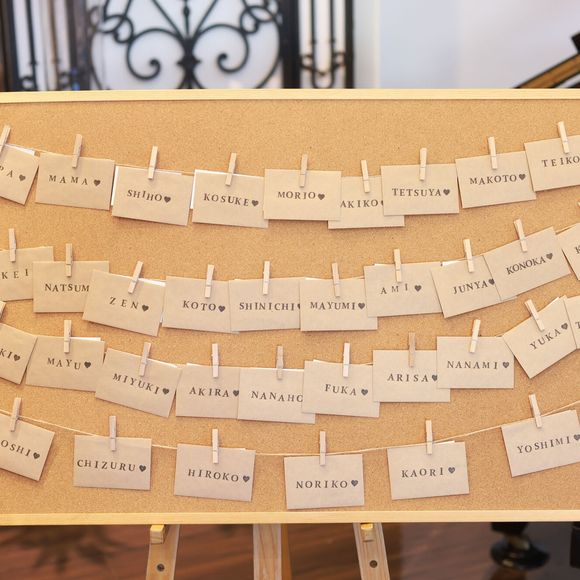 PA♥
MAMA♥
SHIHO♥
KOSUKE♥
MORIO♥
AKIKO♥
TETSUYA♥
MAKOTO♥
TEIKO
KEI♥
NATSUMI
ZEN♥
KOTO♥
SHINICHI
MAYUMI♥
AMI♥
JUNYA♥
KONOKA♥
KI♥
MAYU♥
MIYUKI♥
AKIRA♥
NANAHO
FUKA♥
ARISA♥
NANAMI♥
YUKA♥
OSHI♥
CHIZURU♥
HIROKO♥
NORIKO♥
KAORI♥
YOSHIMI♥